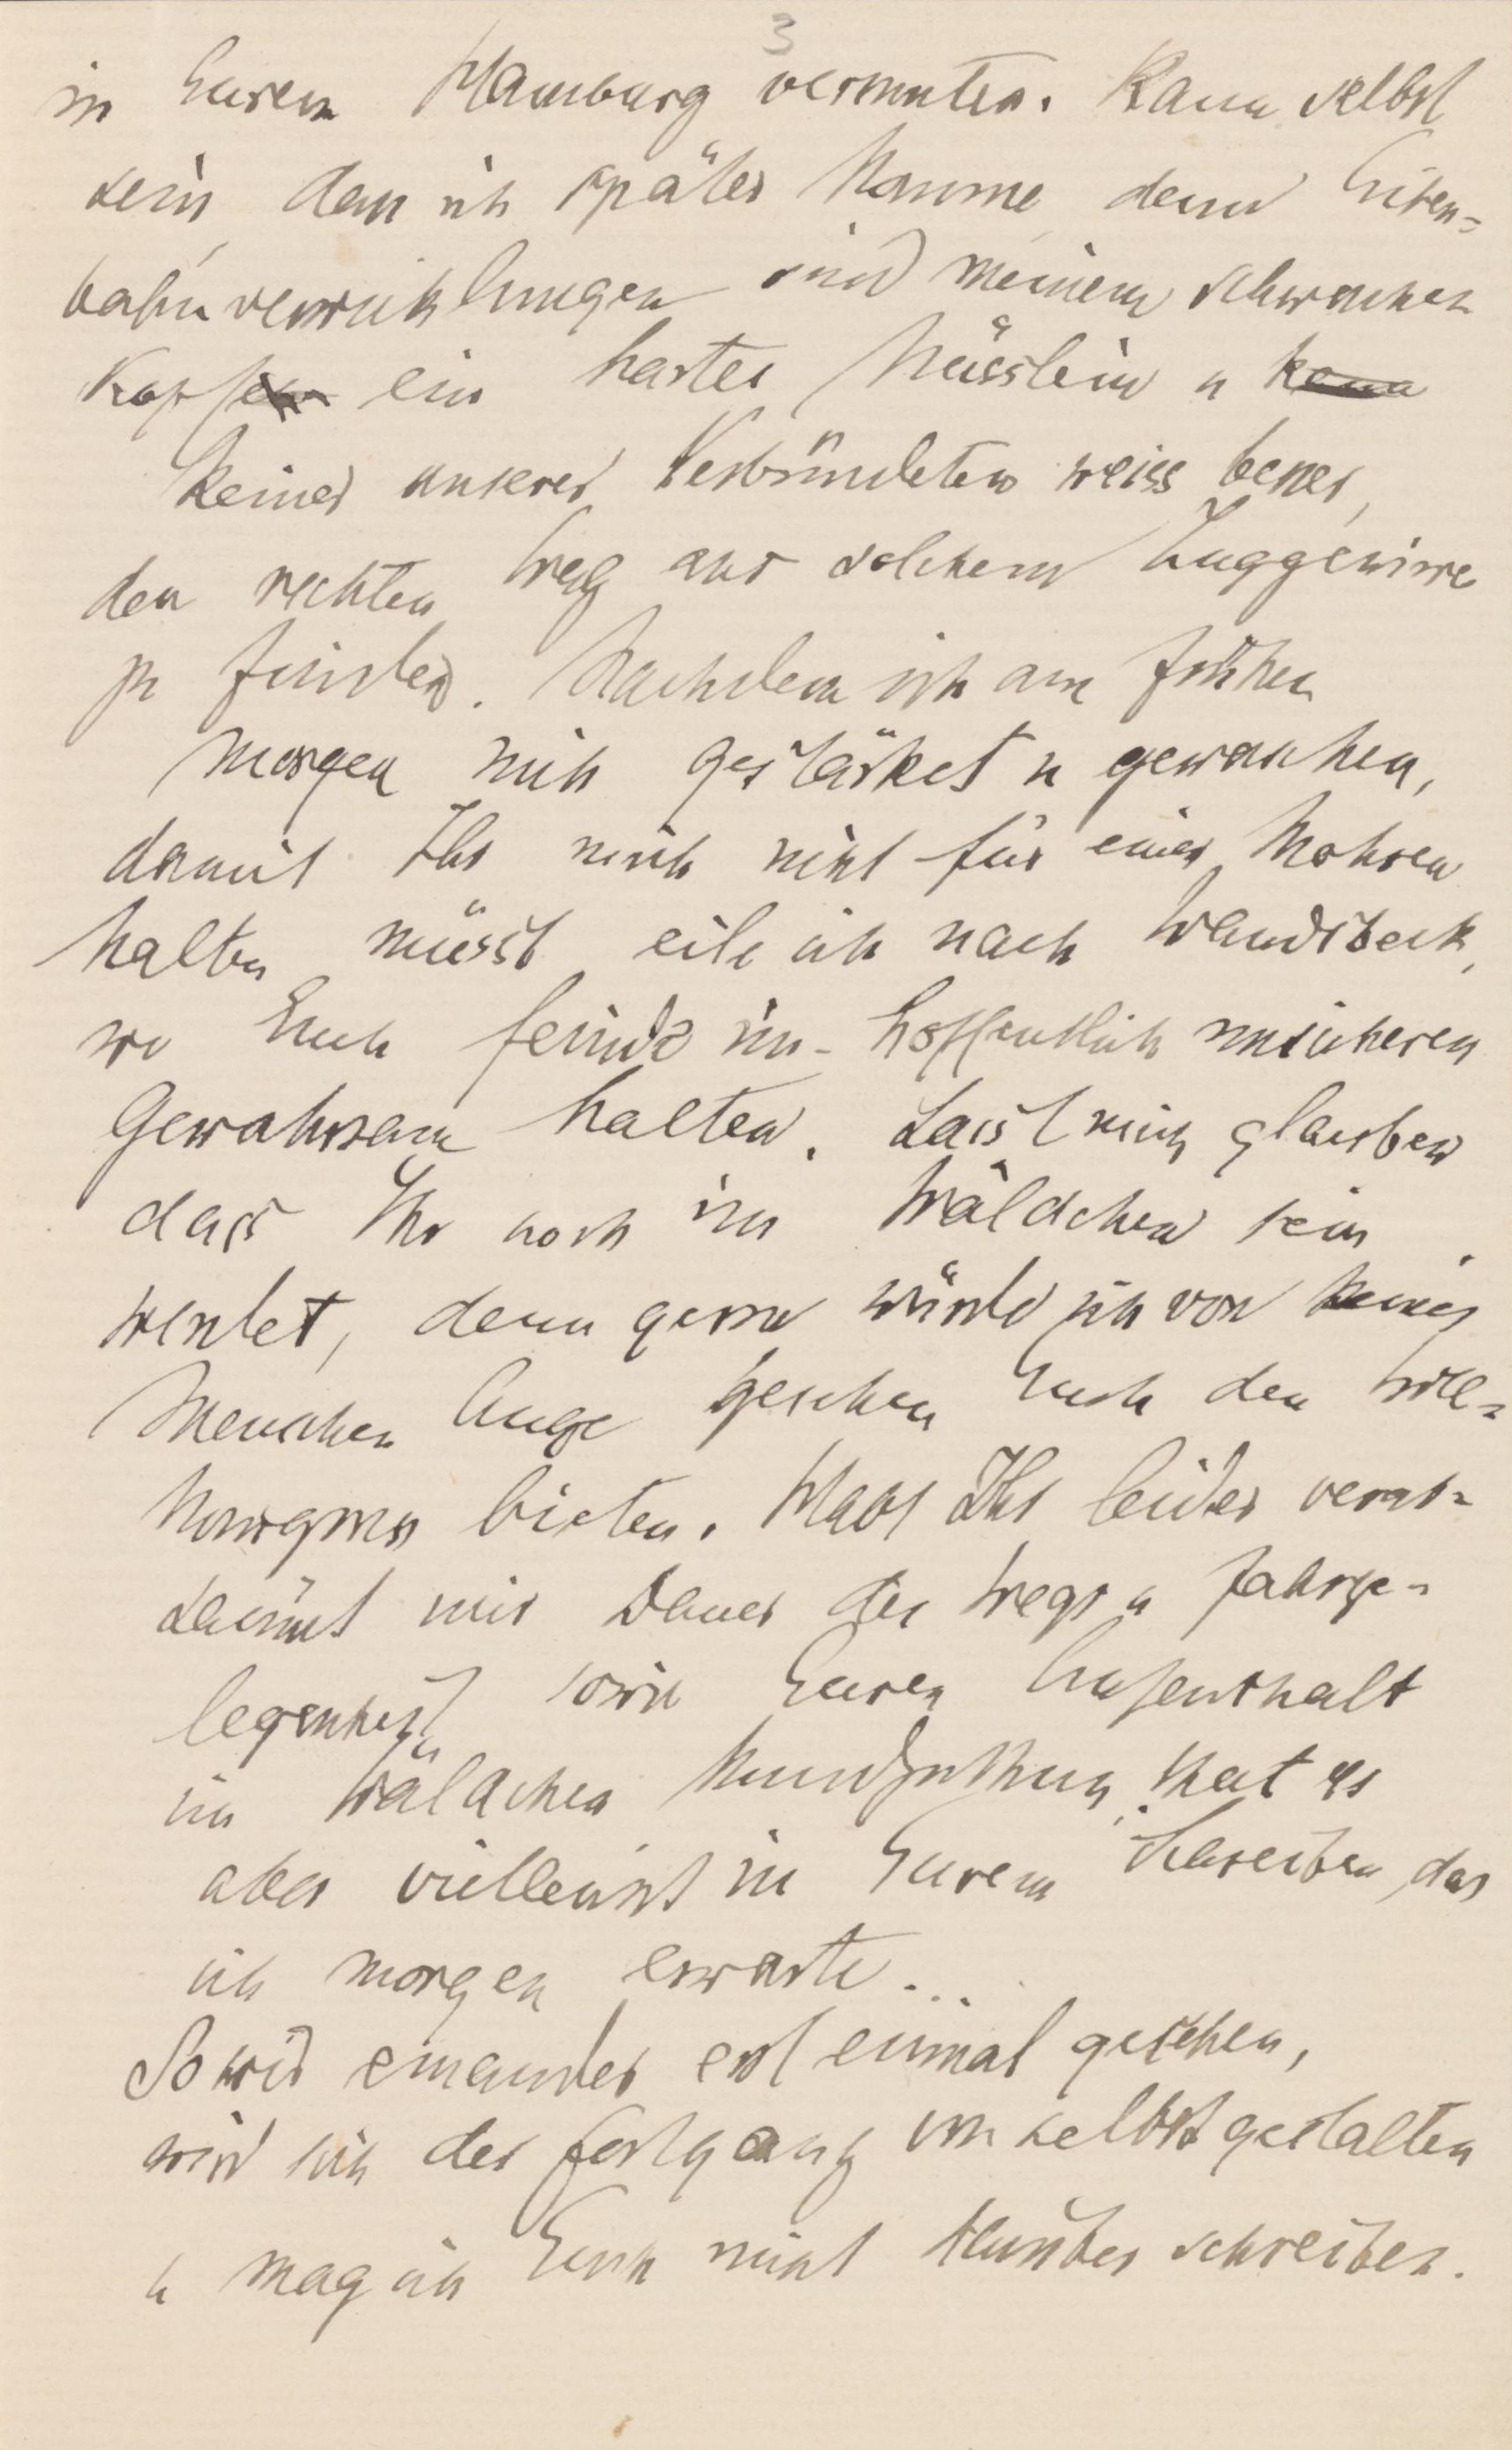 3
in Eurem Hamburg vermuten. Kann selbst
sein dass ich später komme denn Eisen-
bahnverwicklungen sind meinem schwachen
Kopfe ein hartes Nüsslein u
keiner unserer Verbündeten weiss besser,
den rechten Weg aus solchem Zuggewirre
zu finden. Nachdem ich am frühen
Morgen mich gestärket u gewaschen,
damit Ihr mich nicht für einen Mohren
halten müsst eile ich nach Wandsbeck,
wo Euch Feinde in hoffentlich unsicheren
Gewahrsam halten. Lasst mich glauben
dass Ihr noch im Wäldchen sein
werdet, denn gerne würde ich von keines
Menschen Auge gesehen Euch den Will-
komgruss bieten. Habt Ihr leider verab-
säumt mir Dauer des Wegs u Fahrge-
legenheit sowie Euren Aufenthalt
im Wäldchen kundzuthun, that es
aber vielleicht in Eurem Schreiben, das
ich morgen erwarte...
So wir einander erst einmal gesehen,
wird sich der Fortgang von selbst gestalten
u mag ich Euch nicht darüber schreiben.